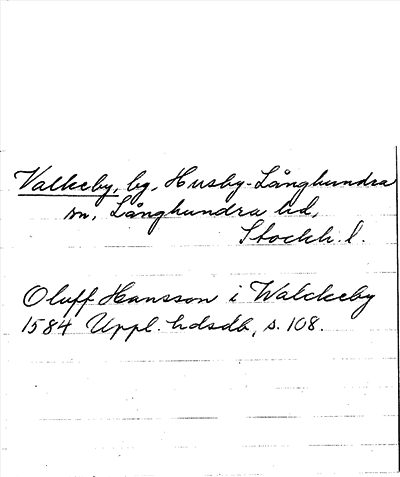 Valkeby, by, Husby-Långhundra
sn, Långhundra hd,
Stockh. l.
Oluff Hansson i Walckeby
1584 Uppl. hdsdb, s. 108.